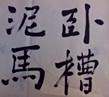 卧槽
泥馬